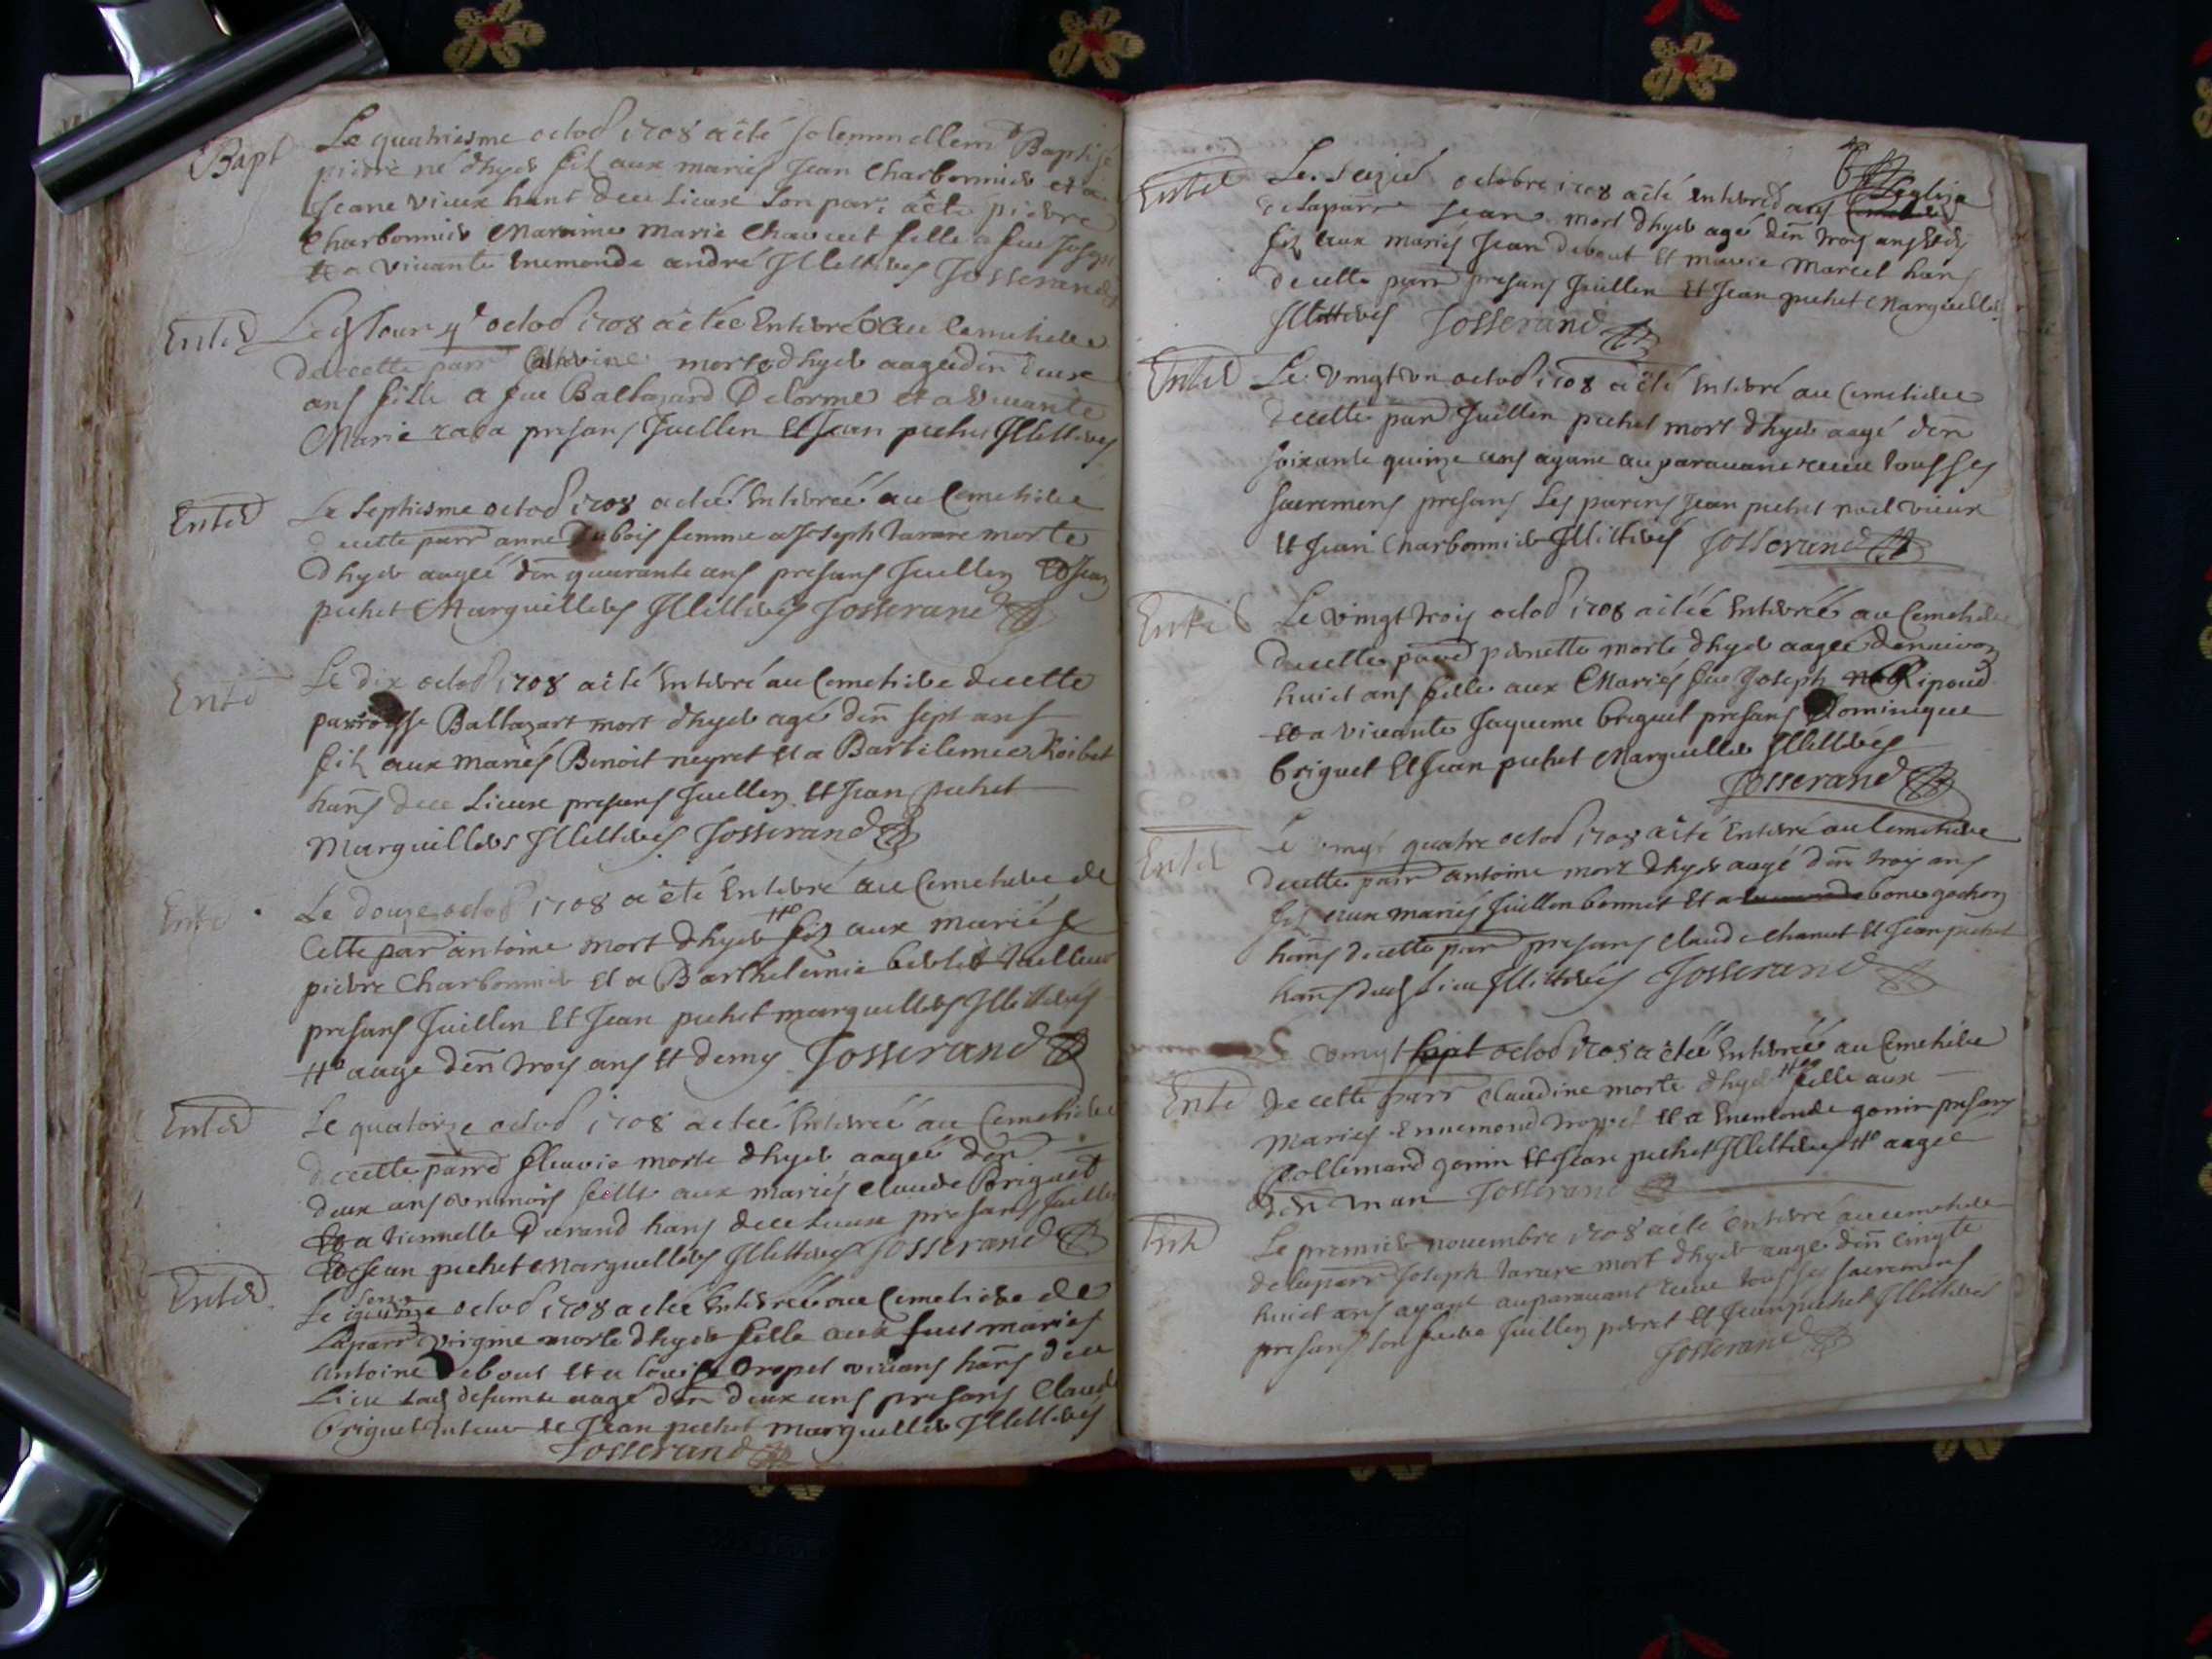 Bapt
Le quatriesme octob 1708 a été solemnellem Baptisé
pierre né dhyer fil aux mariés Jean Charbonnier et a
Jeane vieux hant dece Lieux Son par a été pierre
Charbonnier Maraine Marie Chavuet fille a feu Joseph
et a vivante Enemonde andré Illettres Josserand
Enter
Le Jour 4e octob 1708 a etée Enterrée au Cemetiere
de cette parr Catherine morte dhyer aagée den deux
ans fille a feu Baltazard Delorme et a vivante
Marie presans Juillen Et Jean pichet Illettres
Enter
Le Septiesme octob 1708 a etée Enterreé au Cemetiere
de cette parr anne Dubois femme a Joseph Tarare morte
dhyer aageé den quarante ans presans Juillen Et Jean
pichet Marguilliers Illettres Josserand
Ente
Le dix octob 1708 a eté Enterré au Cemetiere de cette
parroisse Baltazart mort dhyer agé den sept ans
fil aux mariés Benoit neyret et a Bartelemie
hans dece Lieux presans Juillen Et Jean pichet
Marguilliers Illettres Josserand
Ente
Le douze octob 1708 a eté Enterré au Cemetiere de
Cette par antoine mort dhyer # fil aux mariés
pierre Charbonnier et a Barthelemie
presans Juillen Et Jean pichet marguilliers Illettres
# aage den troy ans et demy Josserand
Enter
Le quatorze octob 1708 a etée Enterreé au Cemetiere
de cette parr fleurie morte dhyer aageé den
deux ans un mois fille aux mariés Claude Briguet
Et a tiennette Durand hans dece Lieux presans Juillen
Et Jean pichet Marguilliers Illettres Josserand
Enter
Le quinze octob 1708 a eteé Enterreé au Cemetiere de
Laparr virginie morte dhyer fille aux feus mariés
Antoine Debout et a Louise Tropel vivans hans dece
Lieu lad defunte aagé den deux ans presans Claude
briguet tuteur et Jean pichet marguillier Illettres
Josserand
Enter
Le Seizie octobre 1708 a eté enterré dans Leglize
de Laparr Jean mort dhyer agé den troy ans
fil aux mariés Jean debout Et marie Marcel hans
de cette parr presans Juillen Et Jean pichet Marguilliers
Illettres Josserand
Enter
Le vingt un octob 1708 a eté Enterré au Cemetiere
de cette parr Juillen pichet mort dhyer aagé den
soixante quinze ans ayant au paravant receu tous ses
sacremens presans Les parens Jean pichet noel vieux
Et Jean Charbonnier Illettres Josserand
Enter
Le vingt troy octob 1708 a etéé Enterreé au Cemetiere
de cette parr pernette morte dhyer aageé denviron
huict ans fille aux Mariés feu Joseph Ripoud
et a vivante Jaqueme briguet presans Dominique
briguet Et Jean pichet Marguillier Illettres
Josserand
Enter
Le vingt quatre octob 1708 a eté Enterré au Cemetiere
de cette parr antoine mort dhyer aagé den troy ans
fil aux mariés Juillen bonnet Et a bone gochon
hans de cette parr presans Claude Chanut Et Jean pichet
hans dud Lieu Illettres Josserand
Ente
Le vingt sept octob 1708 a etéé Enterreé au Cemetiere
de cette parr Claudine morte dhyer # fille aux
Mariés Ennemond Troppel et a Enemonde gonin presans
gonin Et Jean pichet Illettres # aagee
den un an Josserand
Ente
Le premier novembre 1708 a eté Enterré au cemetiere
de Laparr Joseph Tarare mort dhyer aage den cinqte
huict ans ayant auparavant receu tous ses sacremens
presans son frere Juillen et Jean pichet Illettres
Josserand